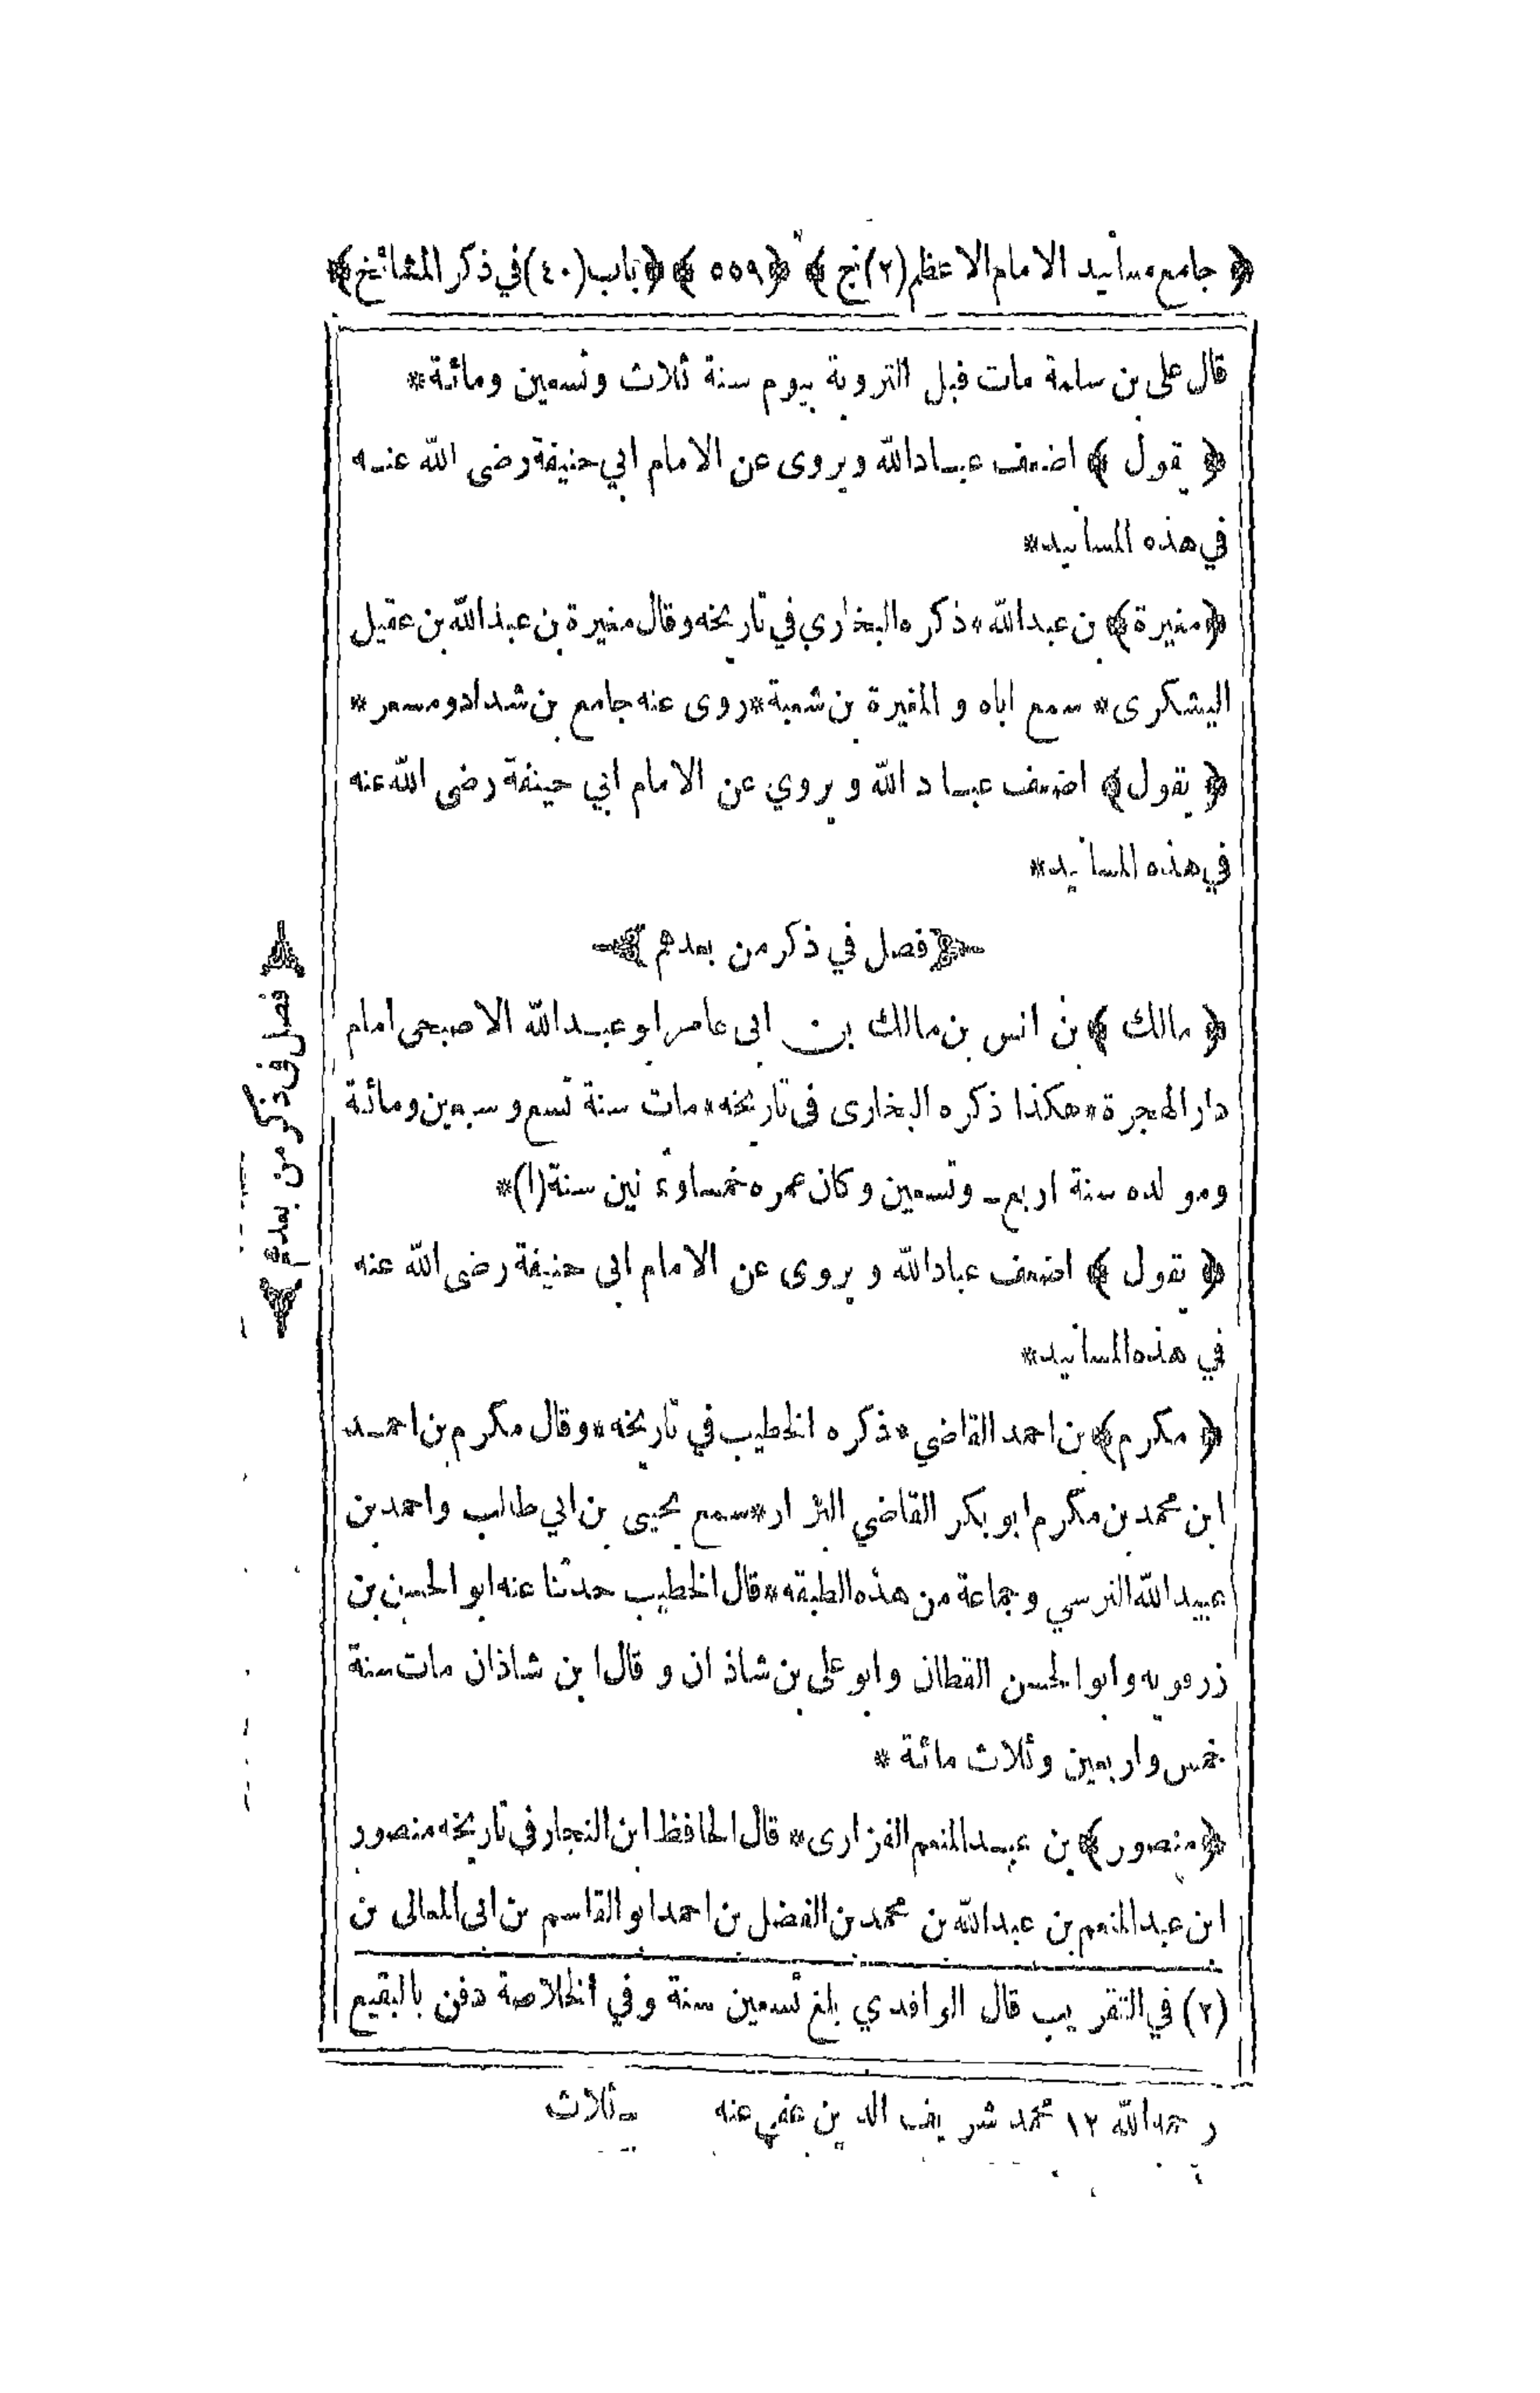 ﴿ جامع مسانيد الامام الاعظم (٢) ج ﴾ ﴿ ٥٥٩ ﴾ ﴿ باب (٤٠) في ذكر المشائخ ﴾
قال على بن سلمة مات قبل التروية بيوم سنة ثلاث وتسعين ومائة *
﴿ يقول ﴾ اضعف عباد الله ويروى عن الامام ابي حنيفة رضى الله عنه
في هذه المسانيد *
﴿ مغيرة ﴾ بن عبد الله * ذكره البخاري في تاريخه وقال مغيرة بن عبد الله بن عقيل
اليشكرى * سمع اباه و المغيرة بن شعبة * روى عنه جامع بن شداد ومسعر *
﴿ يقول ﴾ اضعف عباد الله و يروي عن الامام ابي حنيفة رضى الله عنه
في هذه المسانيد *
﴿ فصل في ذكر من بعدهم ﴾
﴿ مالك ﴾ بن انس بن مالك بن ابى عامر ابو عبد الله الاصبحى امام
دار الهجرة * هكذا ذكره البخارى فى تاريخه * مات سنة تسع و سبعين ومائة
ومولده سنة اربع وتسعين وكان عمره خمسا وثمانين سنة (١) *
﴿ يقول ﴾ اضعف عباد الله و يروى عن الامام ابى حنيفة رضى الله عنه
في هذه المسانيد *
﴿ مكرم ﴾ بن احمد القاضي * ذكره الخطيب في تاريخه * وقال مكرم بن احمد
ابن محمد بن مكرم ابو بكر القاضي البزار * سمع يحيى بن ابي طالب واحمد بن
عبيد الله النرسي وجماعة من هذه الطبقه * قال الخطيب حدثنا عنه ابو الحسن بن
زرقويه وابو الحسن القطان وابو على بن شاذان و قال ابن شاذان مات سنة
خمس واربعين وثلاث مائة *
﴿ منصور ﴾ بن عبد المنعم الفزارى * قال الحافظ ابن النجار في تاريخه منصور
ابن عبد المنعم بن عبد الله بن محمد بن الفضل بن احمد ابو القاسم بن ابى المعالى بن
(٢) في التقريب قال الواقدي بلغ تسعين سنة وفي الخلاصة دفن بالبقيع
رحمه الله ١٢ محمد شريف الدين عفي عنه ثلاث
﴿ فصل فى ذكر من بعدهم ﴾